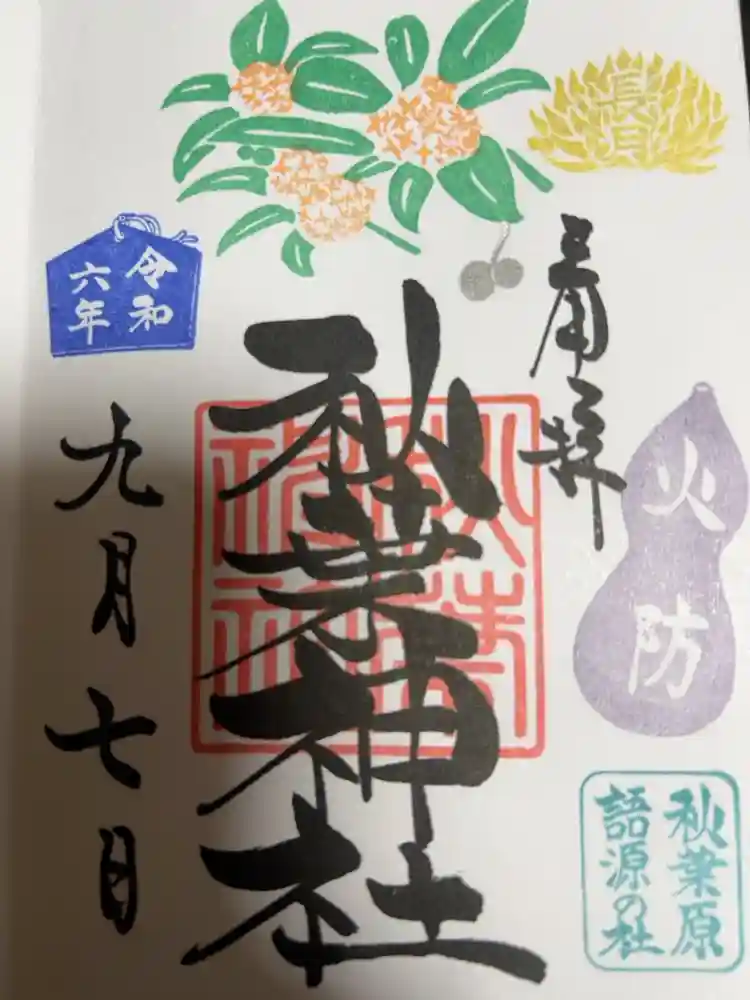 長月
奉拝
火防
秋葉原
語源の社
秋葉神社
秋葉
神社
令和
六年
九月七日